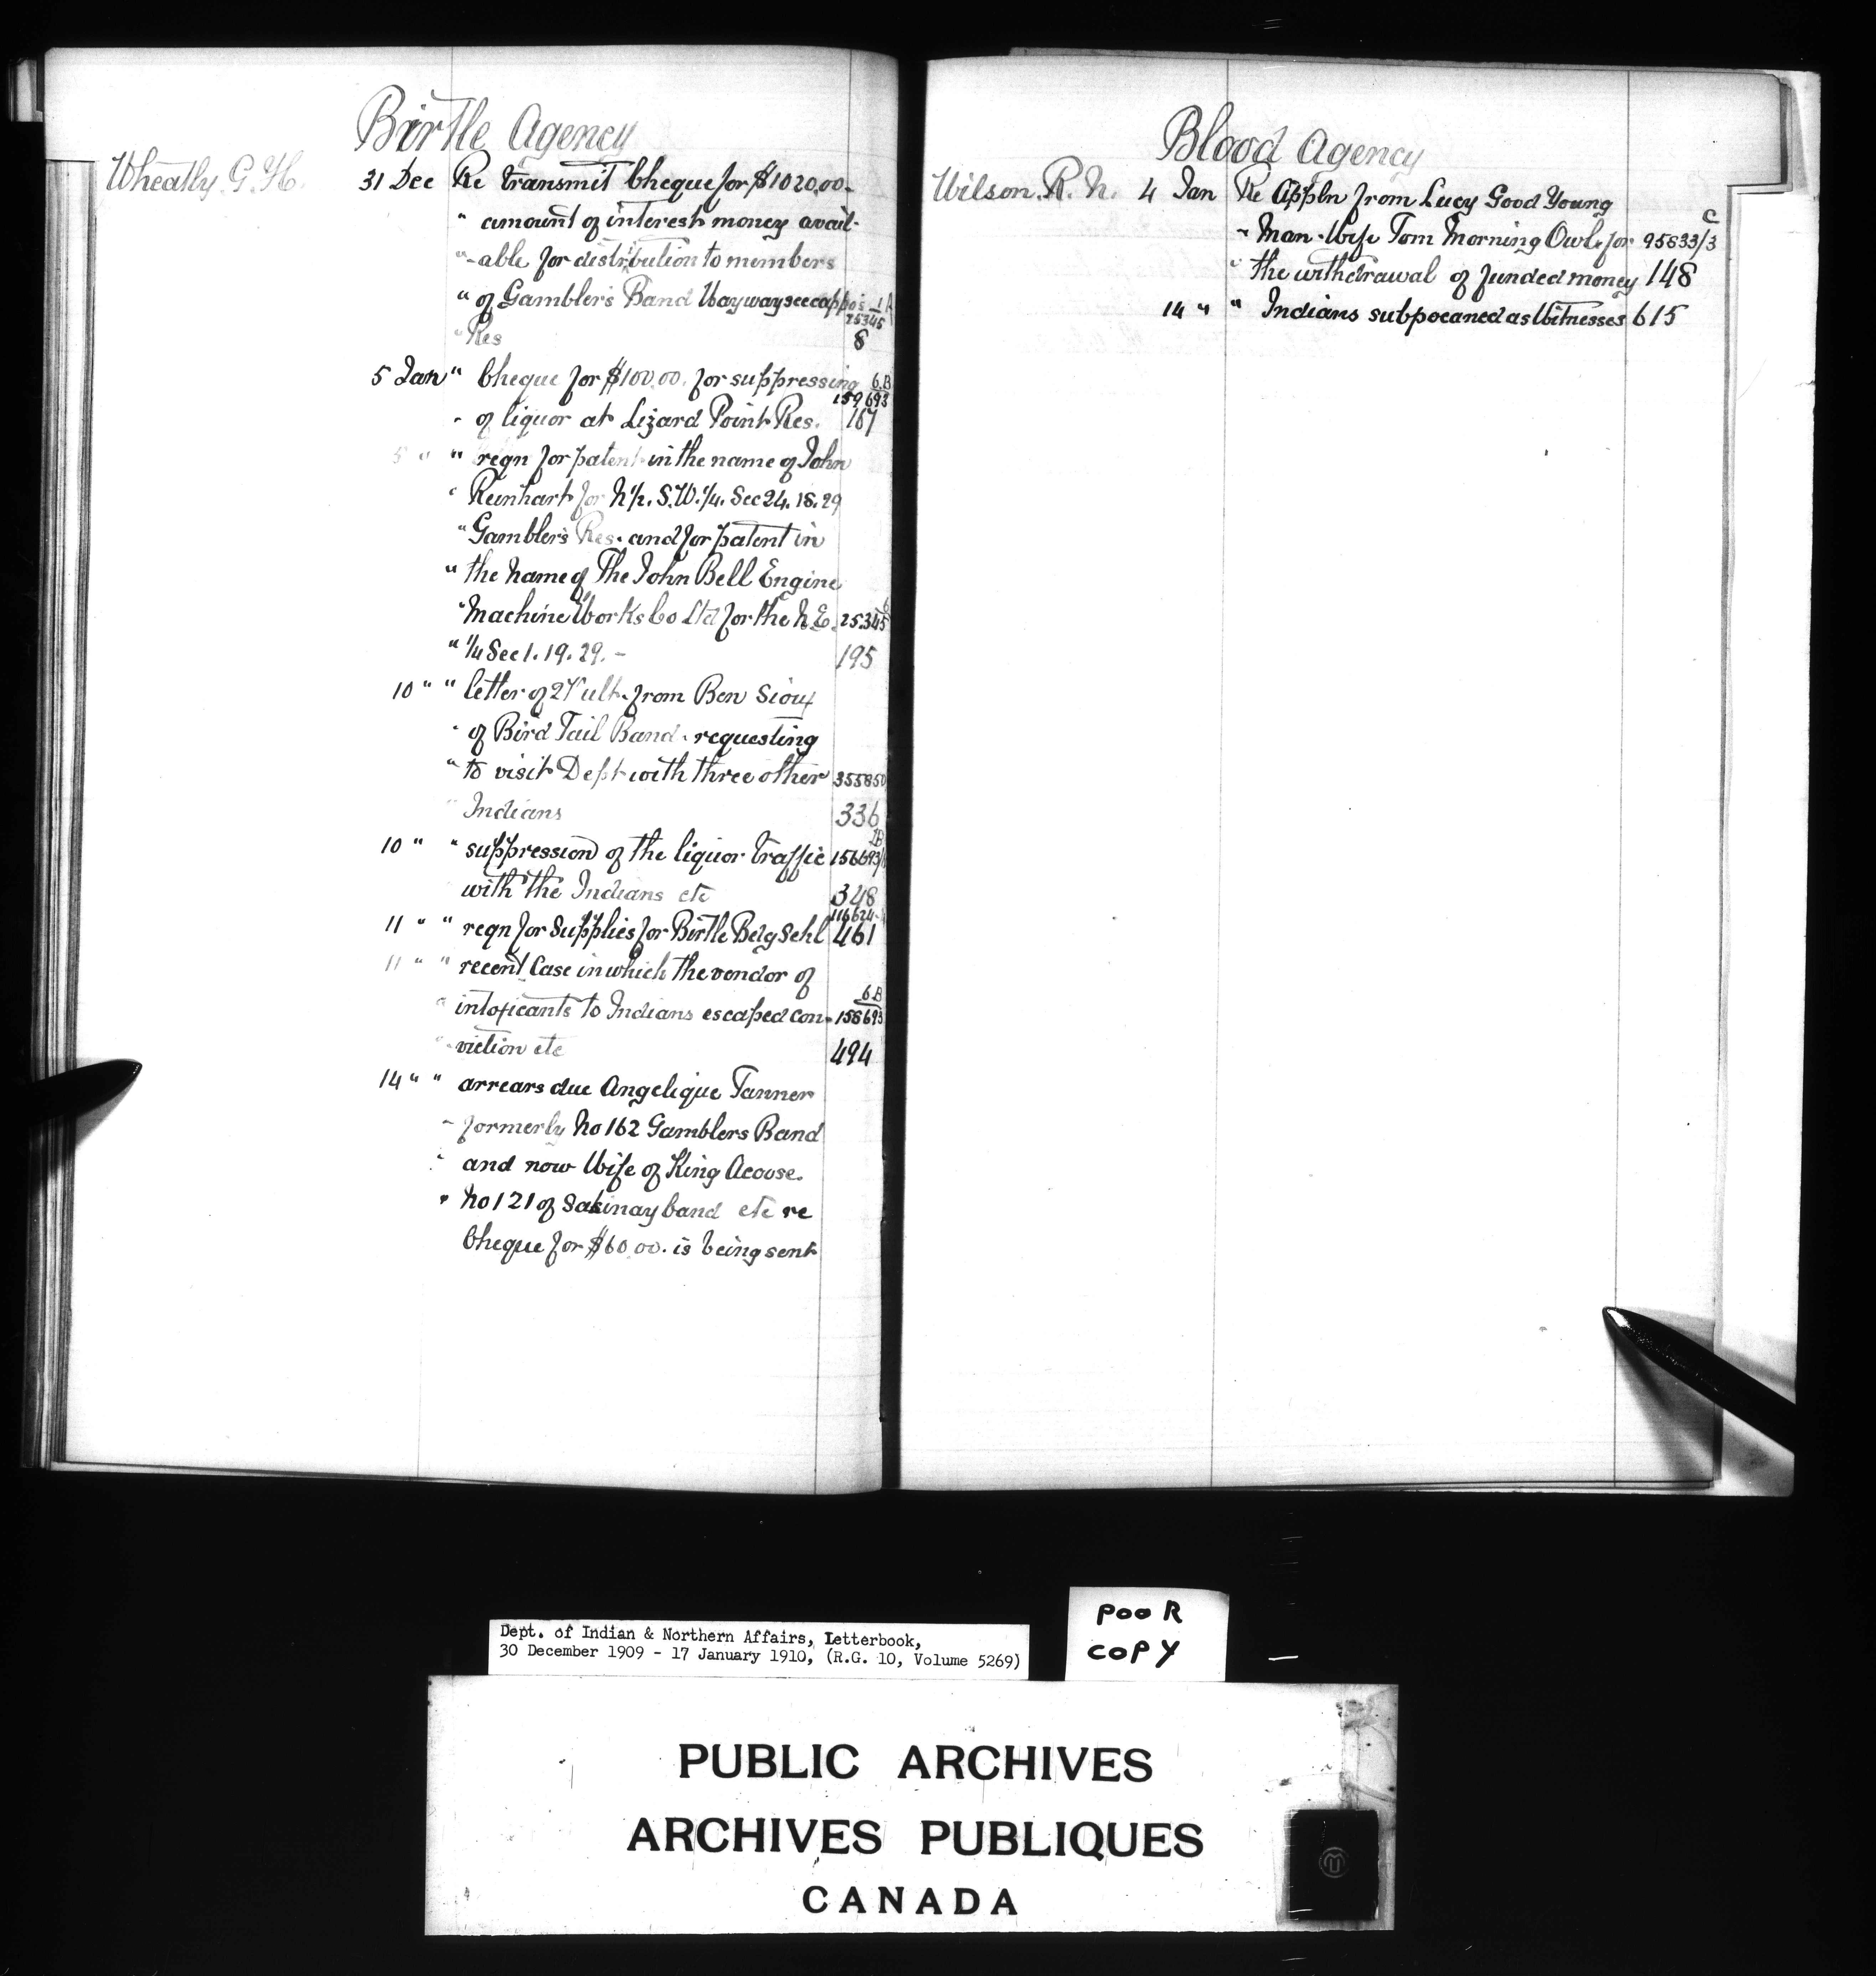 Birtle Agency
Wheatly G. H. 31 Dec Re transmit Cheque for $1020.00-
" amount of interest money avail-
"-able for distribution to members
" of Gambler's Band Waywayseecappo's 1A
25345
" Res 8
5 Jan " Cheque for $100.00. for suppressing 6.B
159,693
- of liquor at Lizard Point Res. 167
5 " " reqn for patent in the name of John
" Reinhart for N½. S.W.¼. Sec 24. 18. 29
" Gamblers Res. and for patent in
" the Name of The John Bell Engine
6
" Machine Works Co Ltd for the N.E. 25345
" ¼ Sec 1. 19. 29. - 195
10 " " letter of 27 ult. from Ben Sioux
" of Bird Tail Band. requesting
" to visit Dept with three other 355850
" Indians 336
1B
10 " " suppression of the liquor traffic 156693/
with the Indians etc 348
116624-
11 " " reqn for Supplies for Birtle Bdg Schl 461
11 " " recent Case in which the vendor of
6.B
" intoxicants to Indians escaped con- 156693
"-viction etc 494
14 " " arrears due Angelique Tanner
- formerly No 162 Gamblers Band
" and now Wife of King Acoose.
" No 121 of Sakinay band etc re
Cheque for $60.00. is being sent
Blood Agency
Wilson. R. N. 4 Jan Re Appln from Lucy Good Young
C
- Man. Wife Tom Morning Owl. for 95833/3
" the withdrawal of funded money 148
14 " " Indians subpoeaned as Witnesses 615
Dept. of Indian & Northern Affairs, Letterbook,
30 December 1909 - 17 January 1910, (R.G. 10, Volume 5269)
POOR
COPY
PUBLIC ARCHIVES
ARCHIVES PUBLIQUES
CANADA